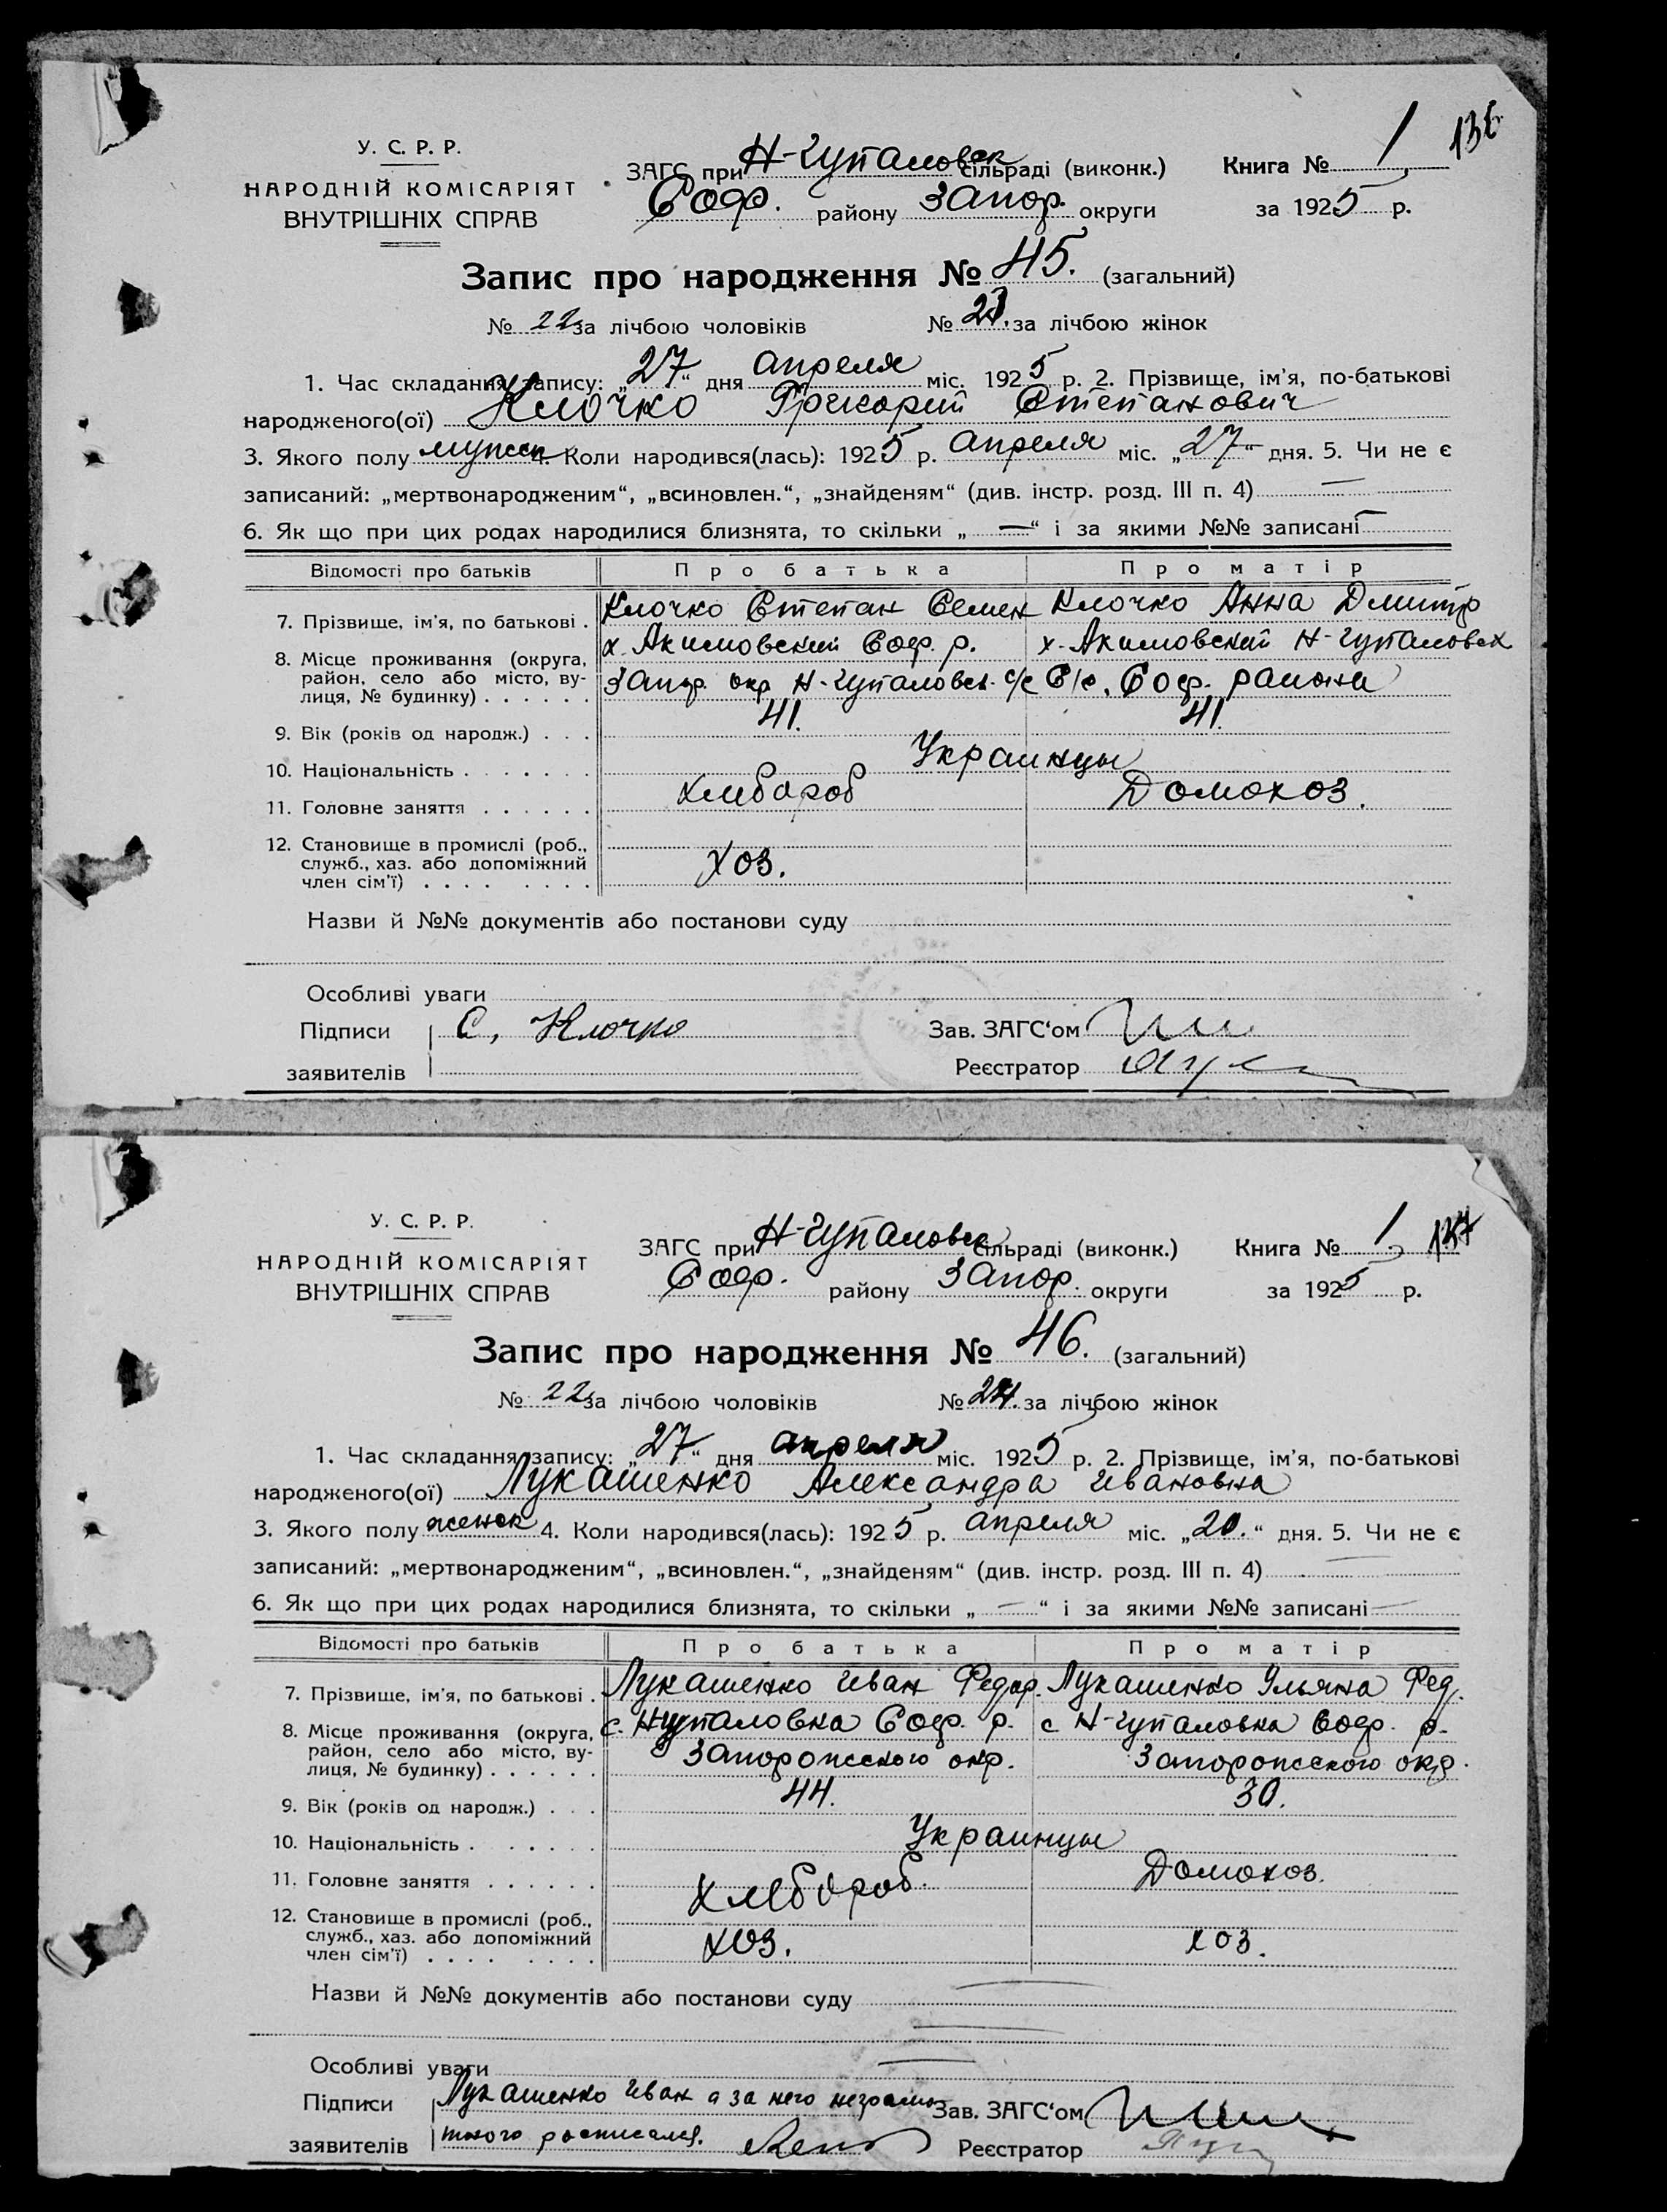 136
У. С. Р. Р.
НАРОДНІЙ КОМІСАРІЯТ
ВНУТРІШНІХ СПРАВ
ЗАГС при Н-Гупаловск сільраді (виконк.) Книга № 1
Соф. району Запор. округи за 1925 р.
Запис про народження № 45. (загальний)
№ 22 за лічбою чоловіків № 23. за лічбою жінок
1. Час складання запису: „27“ дня апреля міс. 1925 р. 2. Прізвище, ім’я, по-батькові
народженого(ої) Клочко Григорий Степанович
3. Якого полу мужск 4. Коли народився(лась): 1925 р. апреля міс. „27“ дня. 5. Чи не є
записаний: „мертвонародженим“, „всиновлен.“, „знайденям“ (див. інстр. розд. III п. 4) —
6. Як що при цих родах народилися близнята, то скільки „ — “ і за якими №№ записані —
Відомості про батьків Про батька Про матір
7. Прізвище, ім’я, по батькові . Клочко Степан Семен Клочко Анна Дмитр
8. Місце проживання (округа, х. Акимовский Соф. р. х. Акимовский Н-Гупаловск
район, село або місто, ву-
лиця, № будинку) . . . . . . Запор. окр Н-Гупаловск. с/с С/с, Соф. района
9. Вік (років од народж.) . . . 41. 41.
10. Національність . . . . . . . Украинцы
11. Головне заняття . . . . . . хлебороб Домохоз.
12. Становище в промислі (роб.,
служб., хаз. або допоміжний хоз.
член сім’ї) . . . . . . . .
Назви й №№ документів або постанови суду
Особливі уваги
Підписи С. Клочко Зав. ЗАГС‘ом
заявителів Реєстратор
137
У. С. Р. Р.
НАРОДНІЙ КОМІСАРІЯТ
ВНУТРІШНІХ СПРАВ
ЗАГС при Н-Гупаловск сільраді (виконк.) Книга № 1
Соф. району Запор. округи за 1925 р.
Запис про народження № 46. (загальний)
№ 22 за лічбою чоловіків № 24. за лічбою жінок
1. Час складання запису: „27“ дня апреля міс. 1925 р. 2. Прізвище, ім’я, по-батькові
народженого(ої) Лукашенко Александра Ивановна
3. Якого полу женск 4. Коли народився(лась): 1925 р. апреля міс. „20.“ дня. 5. Чи не є
записаний: „мертвонародженим“, „всиновлен.“, „знайденям“ (див. інстр. розд. III п. 4) —
6. Як що при цих родах народилися близнята, то скільки „ — “ і за якими №№ записані —
Відомості про батьків Про батька Про матір
7. Прізвище, ім’я, по батькові . Лукашенко Иван Федор. Лукашенко Ульяна Фед.
8. Місце проживання (округа, с. Н-Гупаловка Соф. р. с Н-Гупаловка Соф. р.
район, село або місто, ву- Запорожского окр. Запорожского окр.
лиця, № будинку) . . . . . .
9. Вік (років од народж.) . . . 44. 30.
10. Національність . . . . . . Украинцы
11. Головне заняття . . . . . . хлебороб. Домохоз.
12. Становище в промислі (роб.,
служб., хаз. або допоміжний хоз. хоз.
член сім’ї) . . . . . . . .
Назви й №№ документів або постанови суду —
—
Особливі уваги —
Підписи Лукашенко Иван а за него неграмо Зав. ЗАГС‘ом
заявителів тного расписался. Реєстратор